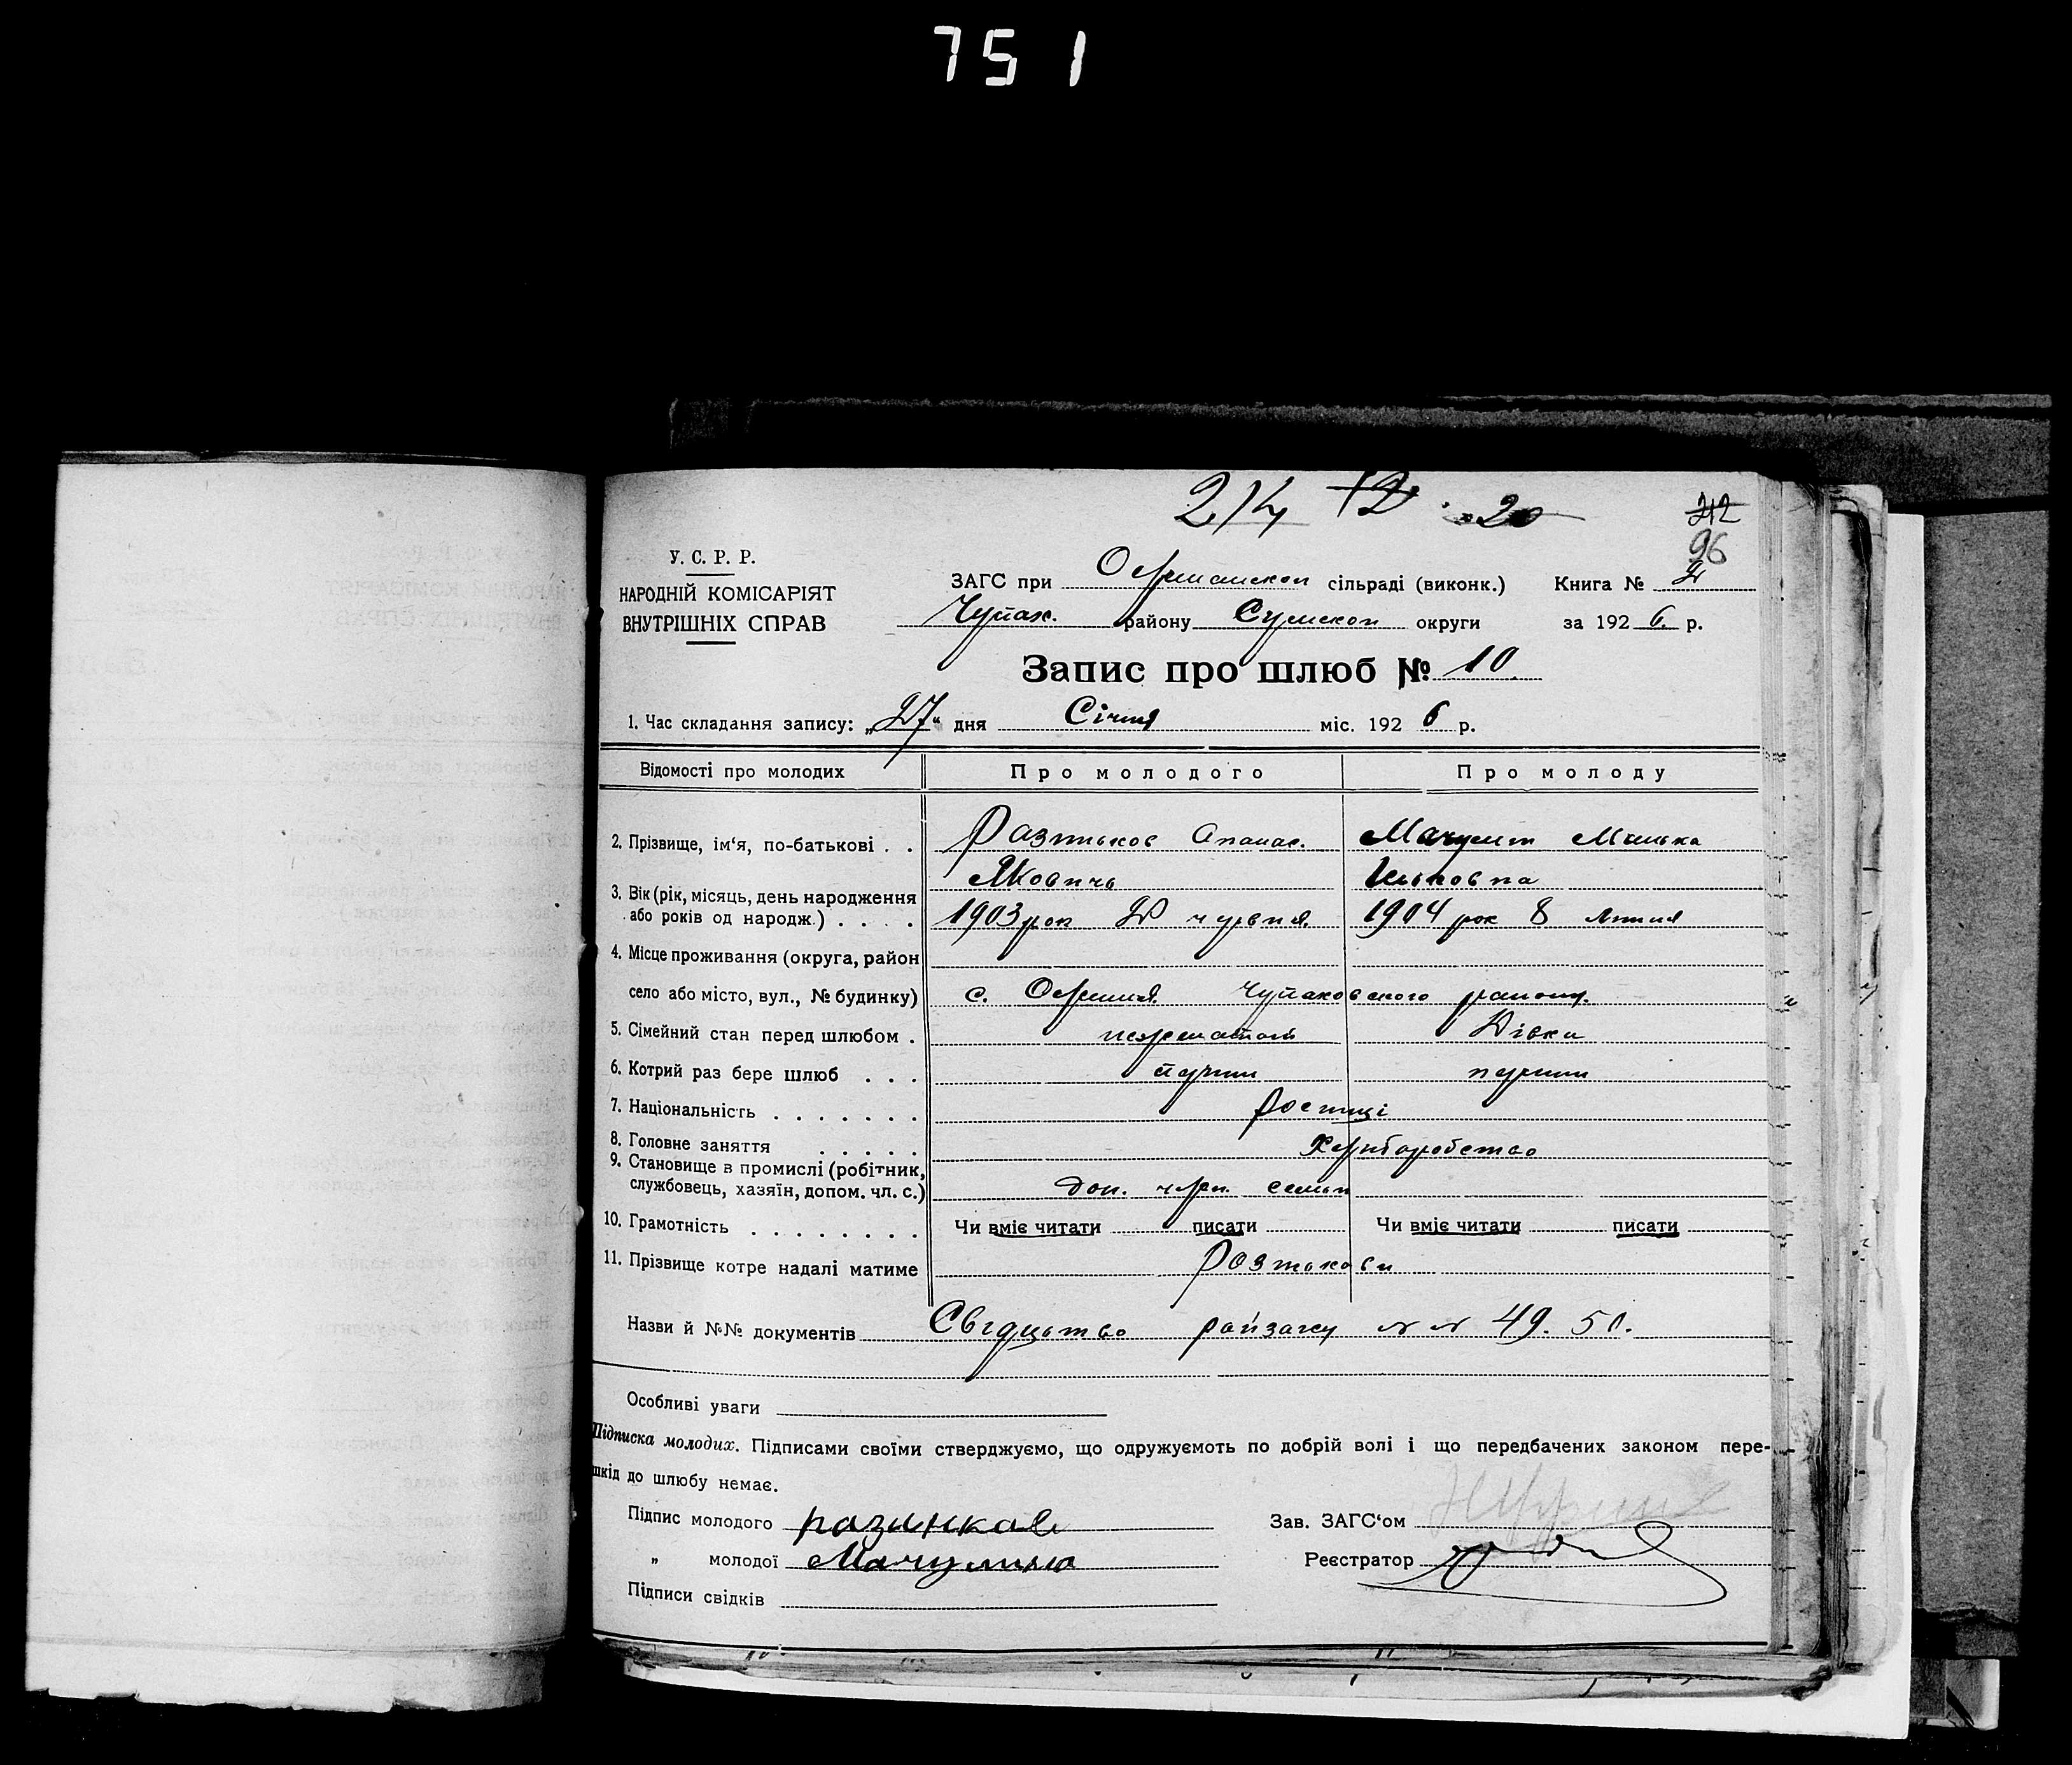 751
214 12 20
212
96
У. С. Р. Р.
НАРОДНІЙ КОМІСАРІЯТ
ВНУТРІШНІХ СПРАВ
ЗАГС при сільраді (виконк.) Книга № 2
Чупах. району Сумской округи за 192 6. р.
Запис про шлюб № 10.
1. Час складання запису: „27“ дня Січня міс. 192 6 р.
Відомості про молодих Про молодого Про молоду
2. Прізвище, ім‘я, по-батькові . . Апанас. Милька
Якович
3. Вік (рік, місяць, день народження
або років од народж.) . . . . 1903 рок червня. 1904 рок 8 липня
4. Місце проживання (округа, район
село або місто, вул., № будинку) с. Чупаховского району.
5. Сімейний стан перед шлюбом . нежонатой Дівка
6. Котрий раз бере шлюб . . . перши перши
7. Національність . . . . . . .
8. Головне заняття . . . . . Хериборобство
9. Становище в промислі (робітник,
службовець, хазяїн, допом. чл. с.) доп. члн. семьи
10. Грамотність . . . . . . . . Чи вміє читати писати Чи вміє читати писати
11. Прізвище котре надалі матиме
Назви й №№ документів Свідцтво райзагсу № № 49. 50.
Особливі уваги
Підписка молодих. Підписами своїми стверджуємо, що одружуємоть по добрій волі і що передбачених законом пере-
шкід до шлюбу немає.
Підпис молодого Зав. ЗАГС‘ом
„ молодої Реєстратор
Підписи свідків